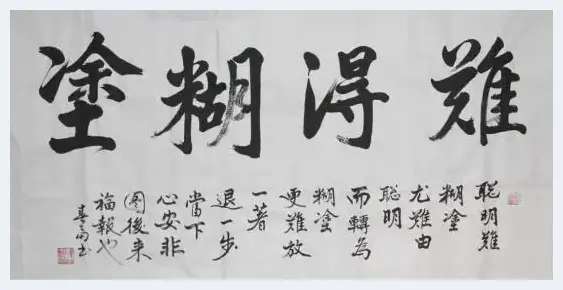 難得糊塗
聰明難
糊塗
尤難由
聰明
而轉為
糊塗
更難放
一著
退一步
當下
心安非
圖後来
福報也